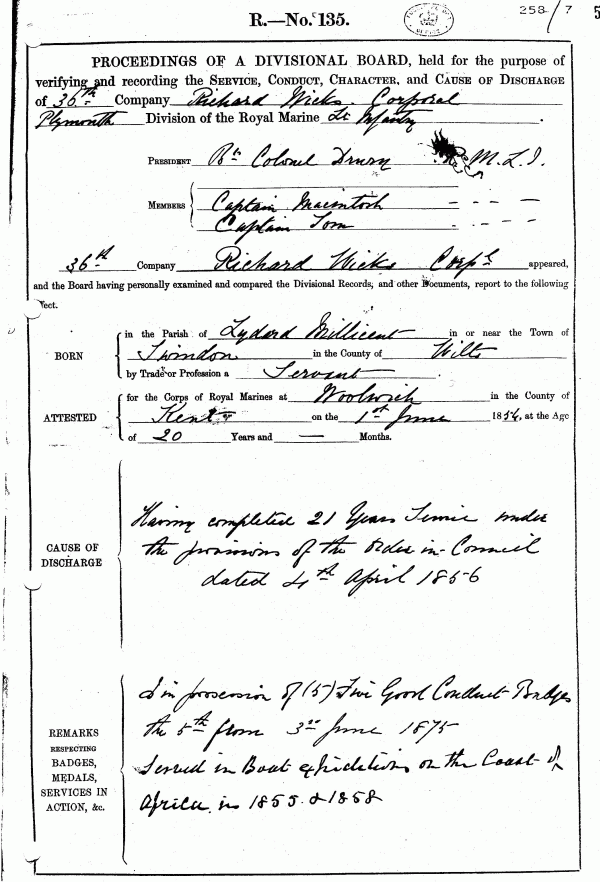 R.—No. 135.
258 / 7
5
PROCEEDINGS OF A DIVISIONAL BOARD, held for the purpose of
verifying and recording the SERVICE, CONDUCT, CHARACTER, and CAUSE OF DISCHARGE
of 36th Company Richard Wicks. Corporal
Plymouth Division of the Royal Marine Lt Infantry.
PRESIDENT Bt Colonel Drury R. M. L. I.
MEMBERS Captain Macintosh - - - -
Captain Tom - - - -
36th Company Richard Wicks Corpl appeared,
and the Board having personally examined and compared the Divisional Records, and other Documents, report to the following
effect.
BORN in the Parish of Lydard Millicent in or near the Town of
Swindon in the County of Wilts
by Trade or Profession a Servant
ATTESTED for the Corps of Royal Marines at Woolwich in the County of
Kent on the 1st June 1854, at the Age
of 20 Years and — Months.
CAUSE OF DISCHARGE
Having completed 21 Years Servie under
the provisions of the Order in Council
dated 4th April 1856
REMARKS RESPECTING BADGES, MEDALS, SERVICES IN ACTION, &c.
Is in possession of (5) Five Good Conduct Badges
the 5th from 3rd June 1875
Served in Boat expeditions on the Coast of
Africa in 1855 & 1858